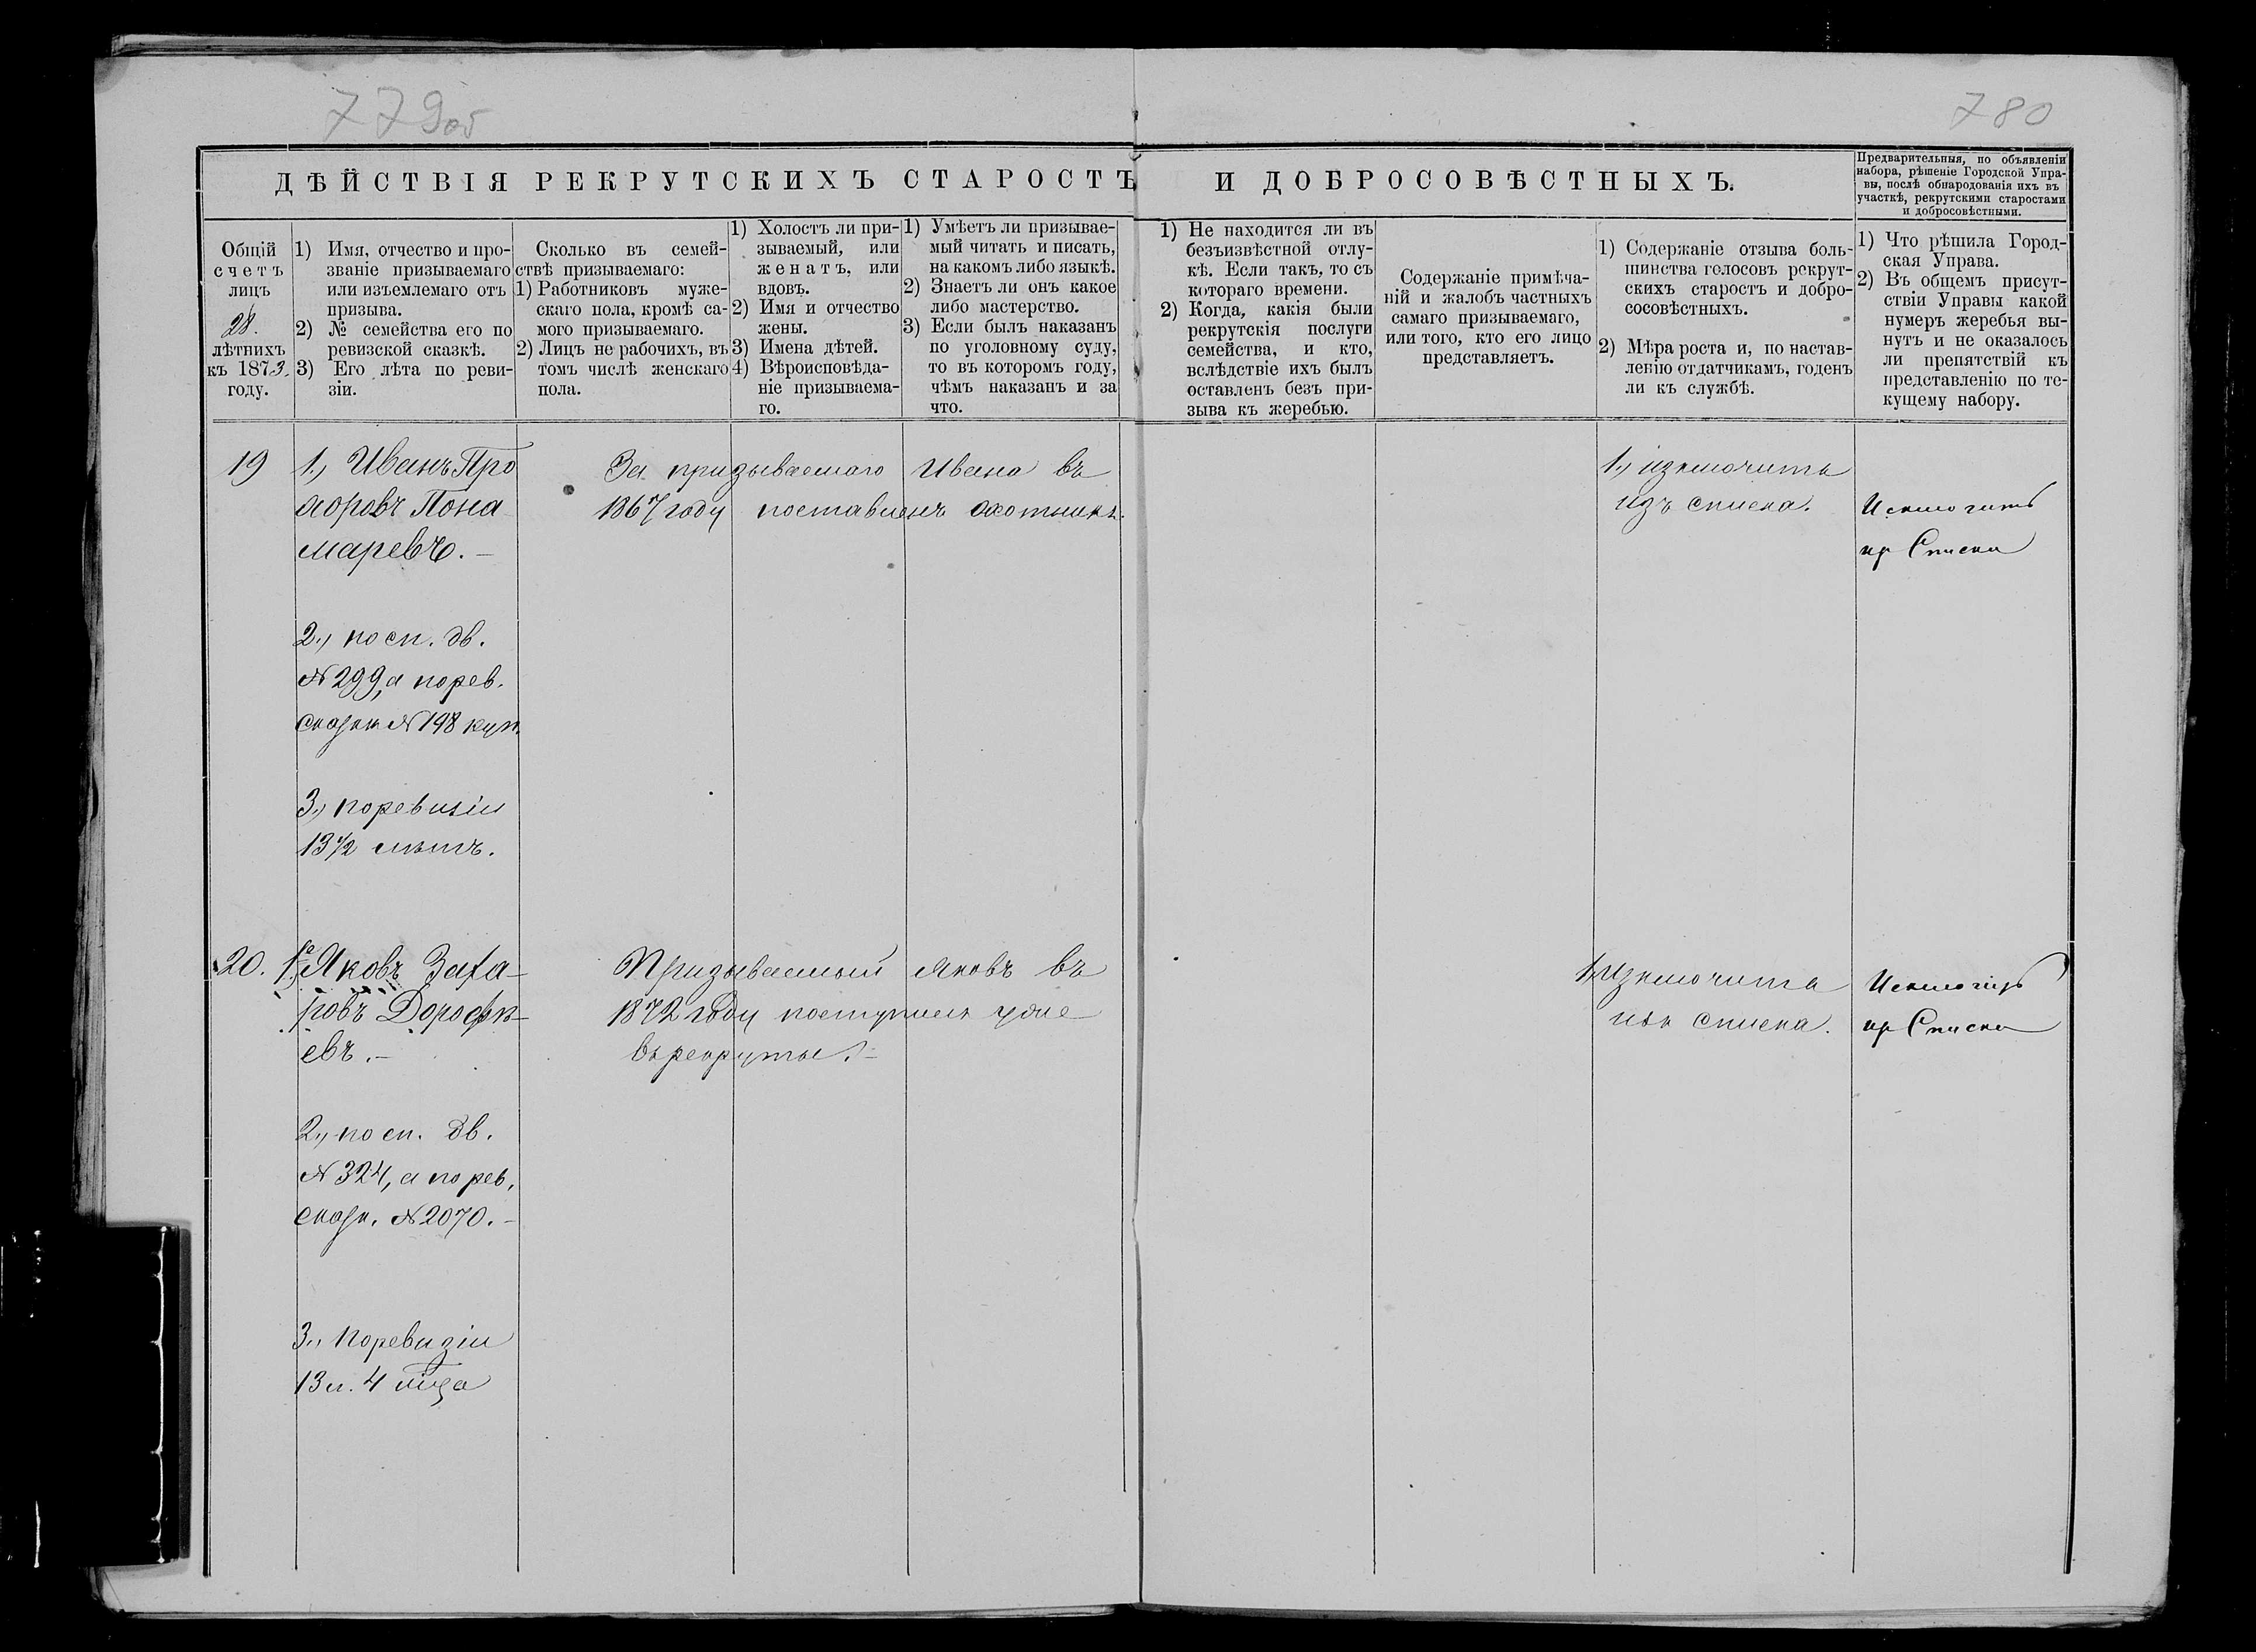 779об
780
ДѢЙСТВІЯ РЕКРУТСКИХЪ СТАРОСТЪ И ДОБРОСОВѢСТНЫХЪ.
Предварительныя, по объявленіи
набора, рѣшеніе Городской Упра-
вы, послѣ обнародованія ихъ въ
участкѣ, рекрутскими старостами
и добросовѣстными.
Общій
счетъ
лицъ
28.
лѣтнихъ
къ 1873.
году.
1) Имя, отчество и про-
званіе призываемаго
или изъемлемаго отъ
призыва.
2) № семейства его по
ревизской сказкѣ.
3) Его лѣта по реви-
зіи.
Сколько въ семей-
ствѣ призываемаго:
1) Работниковъ муже-
скаго пола, кромѣ са-
мого призываемаго.
2) Лицъ не рабочихъ, въ
томъ числѣ женскаго
пола.
1) Холостъ ли при-
зываемый, или
женатъ, или
вдовъ.
2) Имя и отчество
жены.
3) Имена дѣтей.
4) Вѣроисповѣда-
ніе призываема-
го.
1) Умѣетъ ли призывае-
мый читать и писать,
на какомъ либо языкѣ.
2) Знаетъ ли онъ какое
либо мастерство.
3) Если былъ наказанъ
по уголовному суду,
то въ которомъ году,
чѣмъ наказанъ и за
что.
1) Не находится ли въ
безъизвѣстной отлу-
кѣ. Если такъ, то съ
котораго времени.
2) Когда, какія были
рекрутскія послуги
семейства, и кто,
вслѣдствіе ихъ былъ
оставленъ безъ при-
зыва къ жеребью.
Содержаніе примѣча-
ній и жалобъ частныхъ
самаго призываемаго,
или того, кто его лицо
представляетъ.
1) Содержаніе отзыва боль-
шинства голосовъ рекрут-
скихъ старостъ и добро-
сосовѣстныхъ.
2) Мѣра роста и, по настав-
ленію отдатчикамъ, годенъ
ли къ службѣ.
1) Что рѣшила Город-
ская Управа.
2) Въ общемъ присут-
ствіи Управы какой
нумеръ жеребья вы-
нутъ и не оказалось
ли препятствій къ
представленію по те-
кущему набору.
19
1., Иванъ Про
хоровъ Пона
маревъ. –
2., по сп. дв.
№ 299, а по рев.
сказкѣ № 198 куп.
3., по ревизіи
13 1/2 лѣтъ.
За призываемаго Ивана въ
1867 году поставленъ охотникъ.
1., изключить
изъ списка.
Исключить
из Списка
20.
1., Яковъ Заха-
ровъ Дорофѣ-
евъ. –
2., по сп. дв.
№ 324, а по рев.
сказк. № 2070. –
3., По ревизіи
13 л. 4 мѣца
Призываемый Яковъ въ
1872 году поступилъ уже
въ рекруты. –
1, Изключить
изъ списка.
Исключить
из Списка